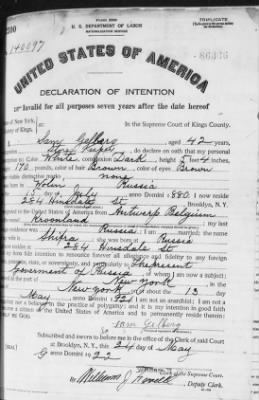 TRIPLICATE
U. S. DEPARTMENT OF LABOR
NATURALIZATION SERVICE
UNITED STATES OF AMERICA
DECLARATION OF INTENTION
Invalid for all purposes seven years after the date hereof
of New York,
of Kings,
In the Supreme Court of Kings County.
Sam aged 42 years,
occupation , do declare on oath that my personal
Color White, complexion Dark, height 5 feet 4 inches,
170 pounds, color of hair Brown, color of eyes Brown
none
born in Russia
15 day of July, anno Domini 1880; I now reside
284 Hinsdale St. Brooklyn, N.Y.
to the United States of America from Antwerp Belgium
Kroonland; my last
residence was Russia; I am married; the name
is Shifra; she was born at Russia
284 Hinsdale St.
It is my bona fide intention to renounce forever all allegiance and fidelity to any foreign
state, or sovereignty, and particularly to The present
Government of Russia, of whom I am now a subject;
at the port of New York, in the
of New York on or about the 13 day
May, anno Domini 1921; I am not an anarchist; I am not a
nor a believer in the practice of polygamy; and it is my intention in good faith
to become a citizen of the United States of America and to permanently reside therein:
ME GOD.
Subscribed and sworn to before me in the office of the Clerk of said Court
at Brooklyn, N. Y., this 24 day of May
anno Domini 1922
Supreme Court.
Deputy Clerk.